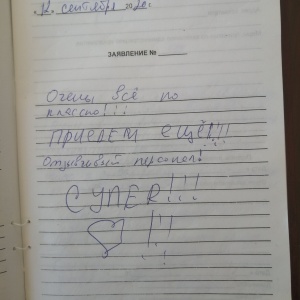 12 сентября 20
ЗАЯВЛЕНИЕ № ______
Очень всё по
классно!!!
ПРИЕДЕМ ЕЩЁ!!!
Отзывчивый персонал!
СУПЕР!!!
!!!